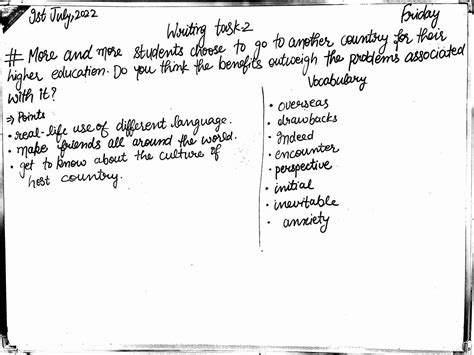 1st July, 2022
Friday
Writing task-2
# More and more students choose to go to another country for their
higher education. Do you think the benefits outweigh the problems associated
with it?
Vocabulary
⇒ Points
• real-life use of different language.
• make friends all around the world.
• get to know about the culture of
host country.
• overseas
• drawbacks
• Indeed
• encounter
• perspective
• initial
• inevitable
• anxiety